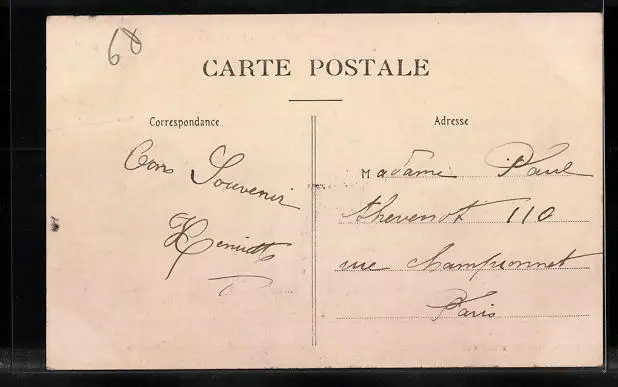 60
CARTE POSTALE
Correspondance
Bons Souvenir
Adresse
Madame Paul
thevenot 110
rue Championnet
Paris